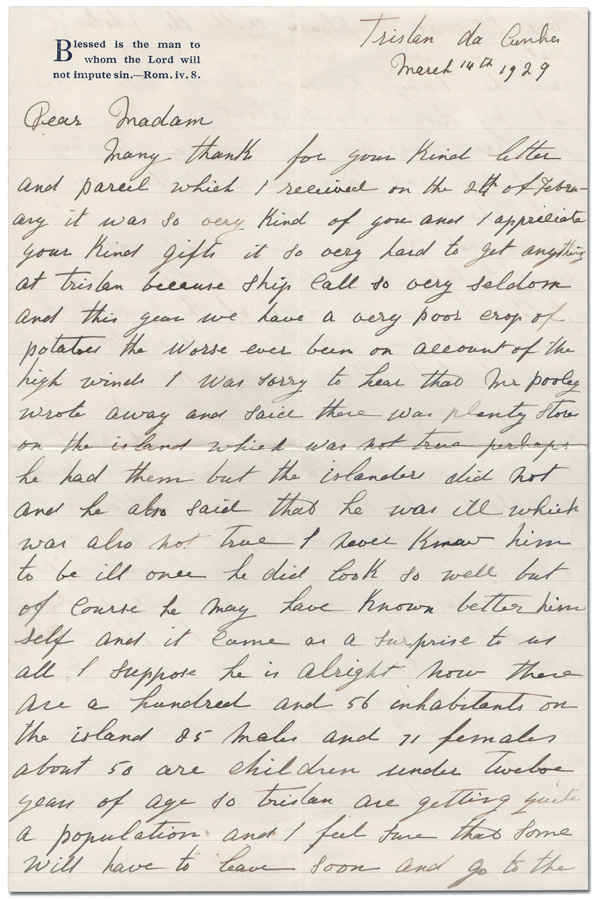 Blessed is the man to
whom the Lord will
not impute sin.—Rom. iv. 8.
Tristan da Cunha
March 14th 1929
Dear Madam
Many thank for your Kind letter
and parcil which I received on the of Febru-
ary it was so very Kind of you and I appriciate
your Kind gifts it so very hard to get anything
at tristan because ship Call so very seldom
and this year we have a very poor crop of
potatoes the worse ever been on account of the
high winds I was sorry to hear that Mr pooley
wrote away and said there was planty Store
on the island which was not true perhaps
he had them but the islanders did not
and he also said that he was ill which
was also not true I never Knew him
to be ill once he did look so well but
of Course he may have Known better him
self and it Came as a surprise to us
all I suppose he is alright now there
are a hundred and 56 inhabitants on
the island 85 males and 71 females
about 50 are children under twelve
years of age so tristan are getting quite
a population and I feel sure that some
will have to leave soon and go to the